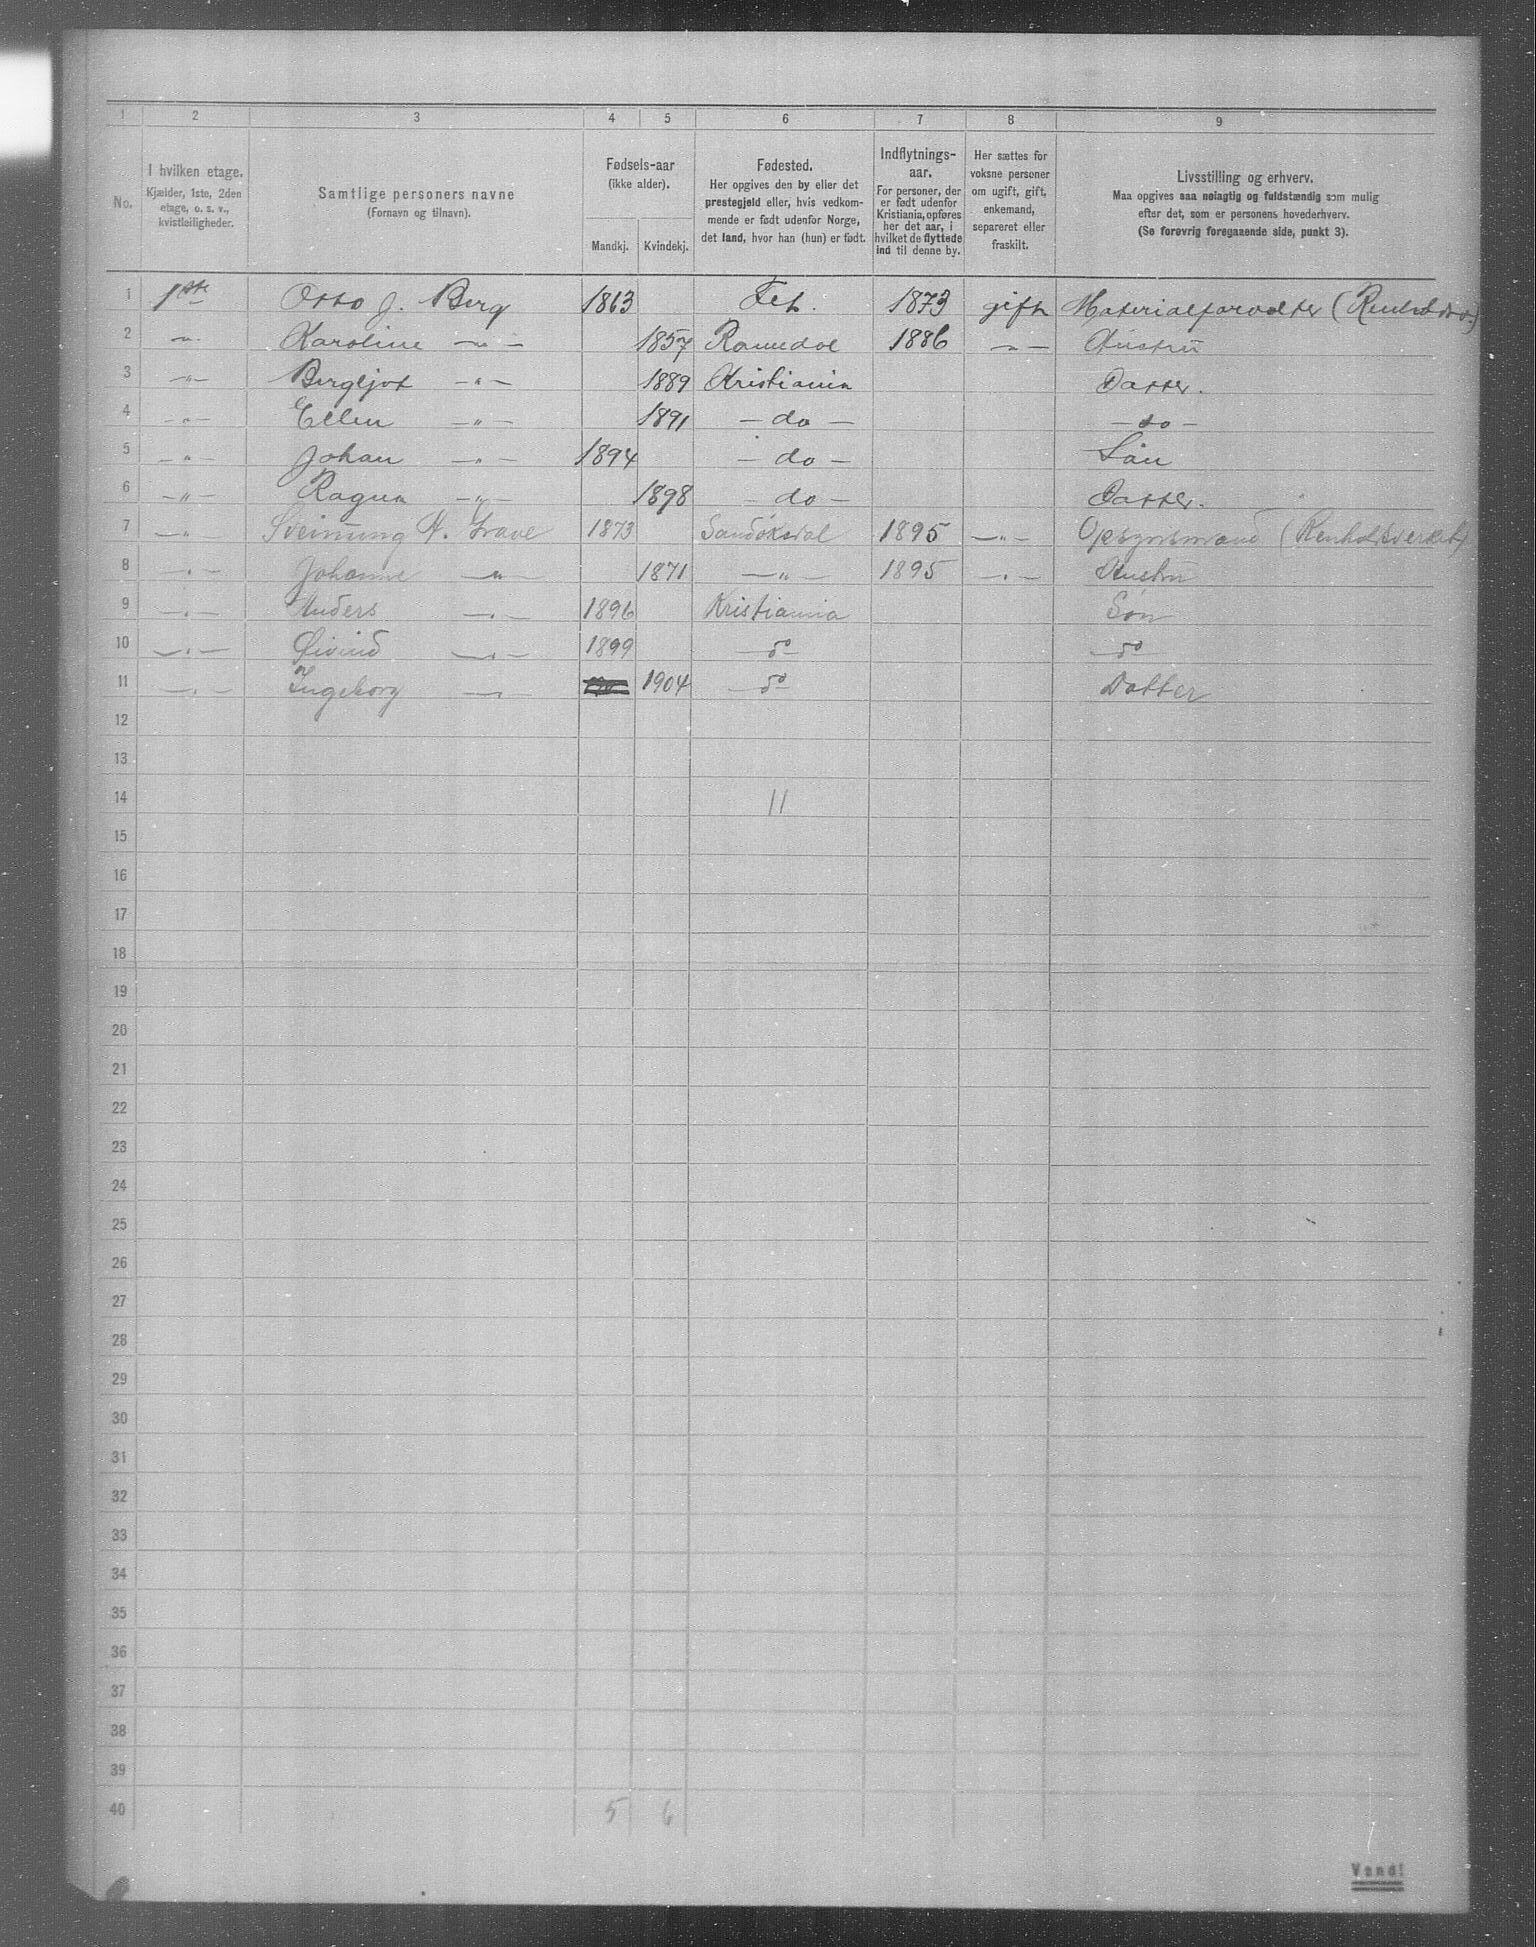 1 2 3 4 5 6 7 8 9
No.
I hvilken etage.
Kjælder, 1ste, 2den
etage, o. s. v.,
kvistleiligheder.
Samtlige personers navne
(Fornavn og tilnavn).
Fødsels-aar
(ikke alder).
Mandkj. Kvindekj.
Fødested.
Her opgives den by eller det
prestegjeld eller, hvis vedkom-
mende er født udenfor Norge,
det land, hvor han (hun) er født.
Indflytnings-
aar.
For personer, der
er født udenfor
Kristiania, opføres
her det aar, i
hvilket de flyttede
ind til denne by.
Her sættes for
voksne personer
om ugift, gift,
enkemand,
separeret eller
fraskilt.
Livsstilling og erhverv.
Maa opgives saa nøiagtig og fuldstændig som mulig
efter det, som er personens hovederhverv.
(Se forøvrig foregaaende side, punkt 3).
1 1ste Otto J. Berg 1863 Fet. 1873 gift Materialforvalter
2 -"- Karoline -"- 1857 Romedal 1886 -"- Hustru
3 -"- Bergljot -"- 1889 Kristiania Datter.
4 -"- Ellen -"- 1891 - do - - do -
5 -"- Johan -"- 1894 - do - Søn
6 -"- Ragna -"- 1898 - do - Datter.
7 -"- Sveinung A. Grave 1873 Sandøkedal 1895 -"- Opsynsmand (Renholdsverket)
8 -"- Johanne -"- 1871 -"- 1895 -"- Hustru
9 -"- Anders -"- 1896 Kristiania Søn
10 -"- Øivind -"- 1899 - do - - do -
11 -"- Ingeborg -"- 1904 - do - Datter
12
13
14 11
15
16
17
18
19
20
21
22
23
24
25
26
27
28
29
30
31
32
33
34
35
36
37
38
39
40 5 6
Vend!